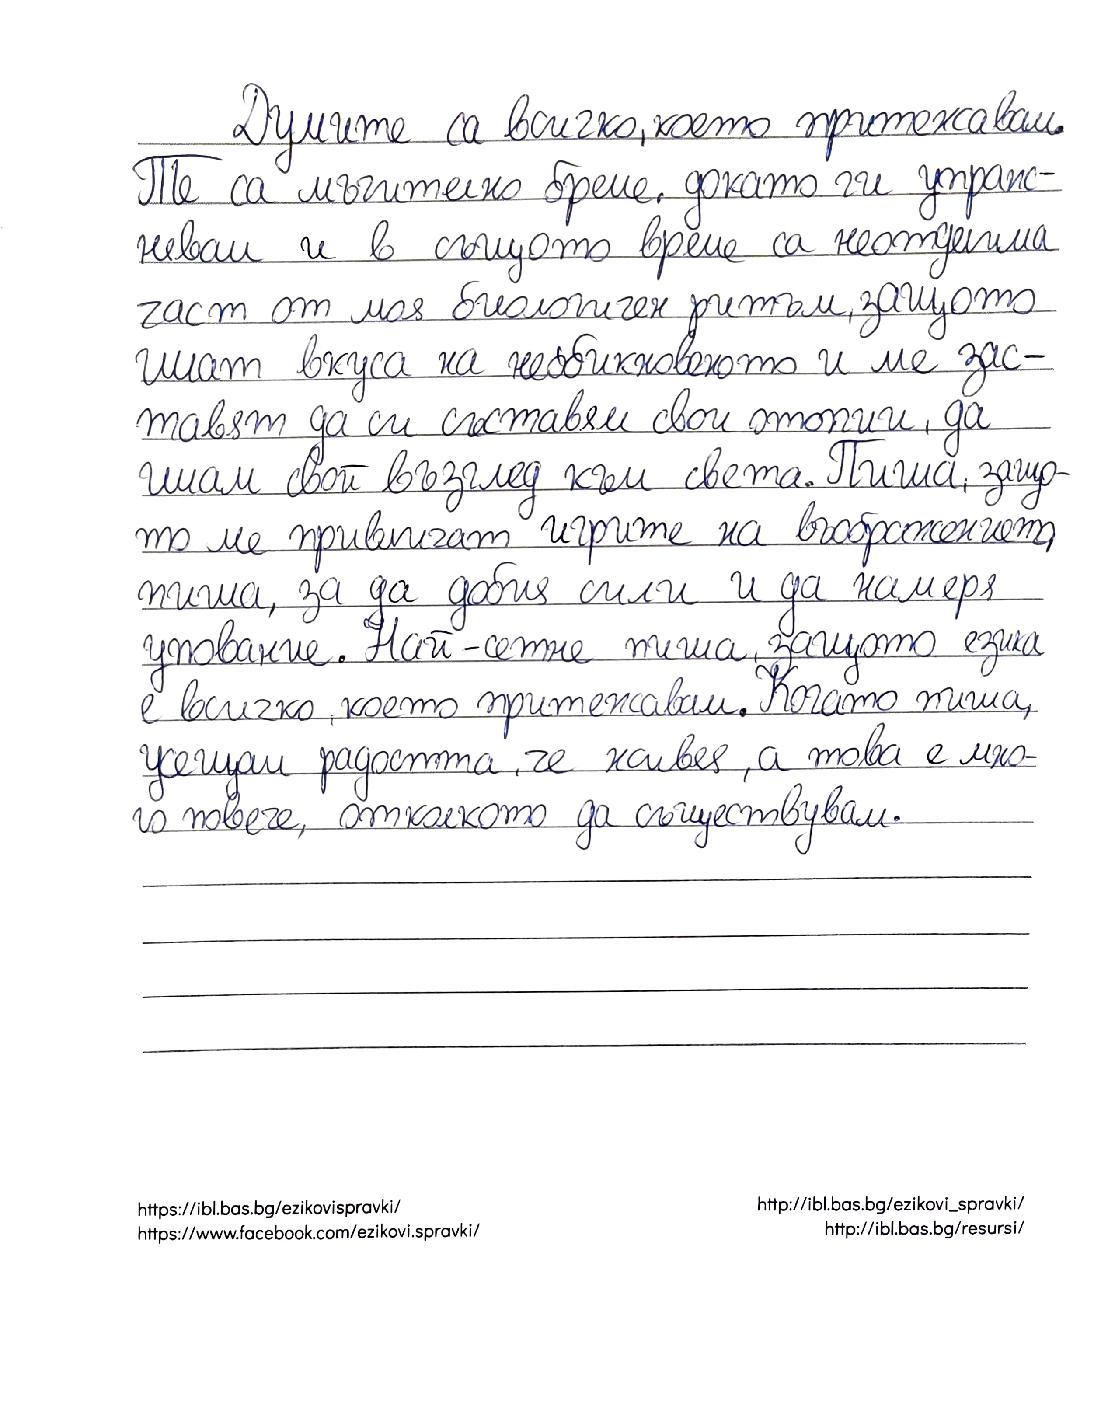 Думите са всичко, което притежавам.
Те са мъчително бреме, докато ги упраж-
невам и в същото време са неотделима
част от моя биологичен ритъм, защото
имат вкуса на необикновеното и ме зас-
тавят да си съставям свои утопии, да
имам свой възглед към света. Пиша, защо-
то ме привличат игрите на въображението,
пиша, за да добия сили и да намеря
упование. Най-сетне пиша, защото езика
е всичко, което притежавам. Когато пиша,
усещам радостта, че живея, а това е мно-
го повече, отколкото да съществувам.
https://ibl.bas.bg/ezikovispravki/
https://www.facebook.com/ezikovi.spravki/
http://ibl.bas.bg/ezikovi_spravki/
http://ibl.bas.bg/resursi/